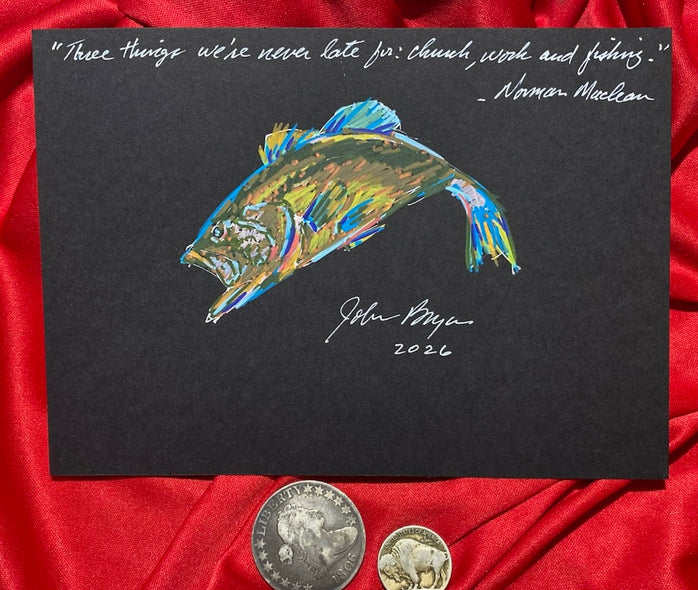 "Three things we're never late for: church, work and fishing."
- Norman Maclean
John Bryan
2026
LIBERTY
1806
UNITED STATES OF AMERICA